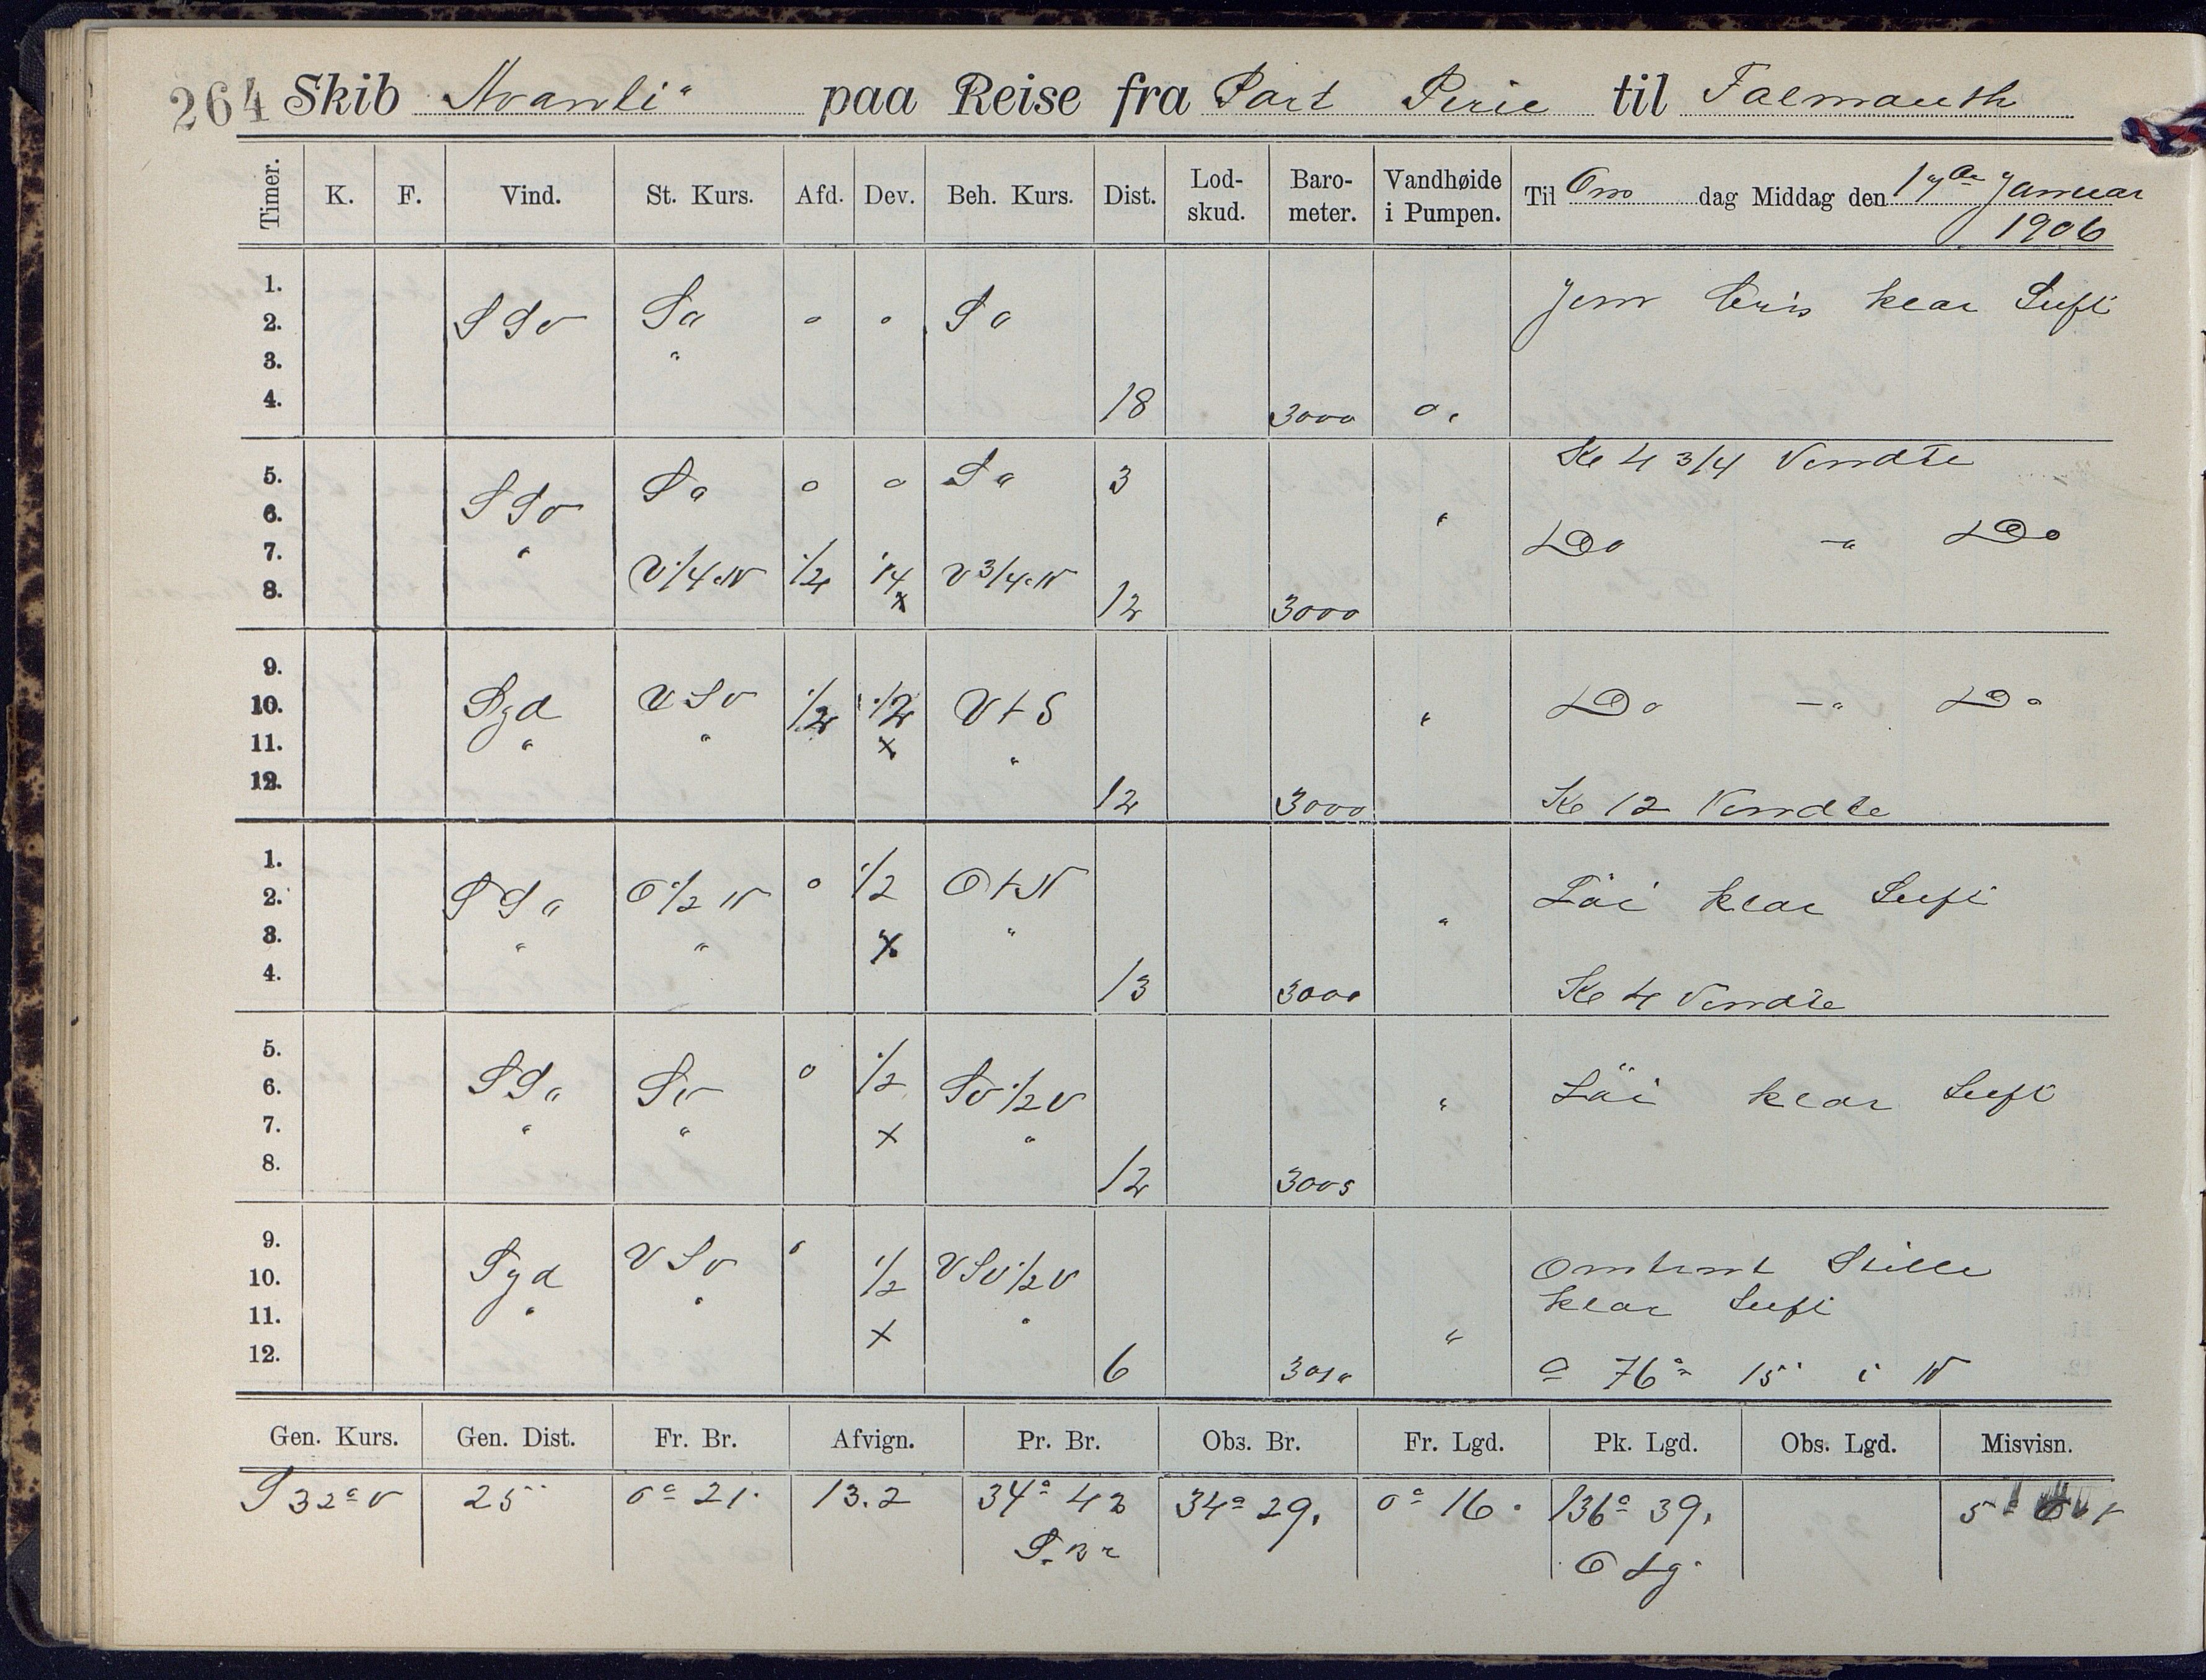 264 Skib Avanti" paa Reise fra Port Pirie til Falmouth
Timer. K. F. Vind. St. Kurs. Afd. Dev. Beh. Kurs. Dist. Lod-skud. Baro-meter. Vandhøide i Pumpen. Til Ons dag Middag den 17de Januar 1906
1. Jevn Bris klar Luft
2. SSV So o o So
3. "
4. 18 3000 0,
Kl 4 3/4 Vendte
5. So o o So 3
6. SSV "
7. " Do -"- Do
8. V1/4N 1/2 1/4 x V3/4N 12 3000
9.
10. Syd VSV 1/2 1/2 V t S " Do -"- Do
11. " " x "
12. 12 3000 Kl 12 Vendte
1.
2. SSo O1/2 N o 1/2 O t N " Løi klar Luft
3. " " x "
4. 13 3000 Kl 4 Vendte
5.
6. SSo SV o 1/2 SV1/2V " Løi klar Luft
7. " " x "
8. 12 3005
9.
10. Syd VSV o 1/2 VSV1/2V Omtrent Stille
11. " " x " " klar Luft
12. 6 3010 a 76° 15' i N
Gen. Kurs. Gen. Dist. Fr. Br. Afvign. Pr. Br. Obs. Br. Fr. Lgd. Pk. Lgd. Obs. Lgd. Misvisn.
S 32° V 25" 0° 21' 13.2 34° 42 34° 29, 0° 16' 136° 39, 5°
S. Br O Lg.